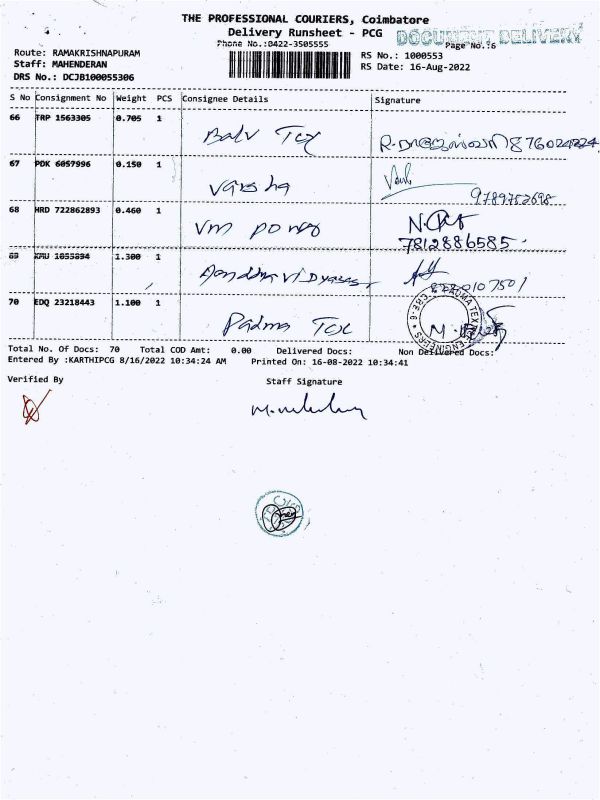 THE PROFESSIONAL COURIERS, Coimbatore
Delivery Runsheet - PCG
Phone No.:0422-3505555
DOCUMENT DELIVERY
Page No.:6
Route: RAMAKRISHNAPURAM
Staff: MAHENDERAN
DRS No.: DCJB100055306
RS No.: 1000553
RS Date: 16-Aug-2022
S No Consignment No Weight PCS Consignee Details Signature
66 TRP 1563305 0.705 1 Balu Tex
67 PDK 6057996 0.150 1 Varsha 9789752698
68 HRD 722862893 0.460 1 Vm
7812886585
69 1.300 1
70 EDQ 23218443 1.100 1 Padma Tex
PADMA TEX ENGINEERS CBE-6
Total No. Of Docs: 70 Total COD Amt: 0.00 Delivered Docs: Non Delivered Docs:
Entered By :KARTHIPCG 8/16/2022 10:34:24 AM Printed On: 16-08-2022 10:34:41
Verified By Staff Signature